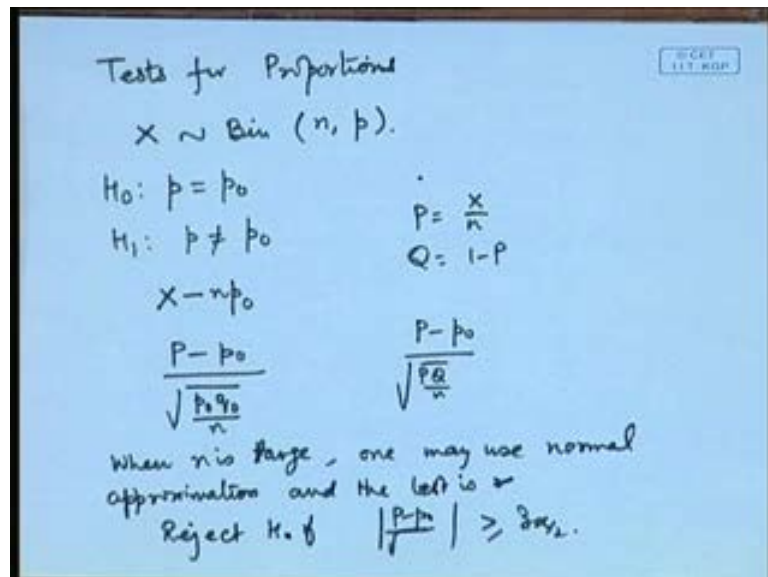 Tests for Proportions
© CET
I.I.T. KGP
X ~ Bin (n, p).
H₀: p = p₀
H₁: p ≠ p₀
P = X/n
Q = 1-P
X - np₀
(P - p₀)/√(p₀q₀/n)
(P - p₀)/√(PQ/n)
When n is large, one may use normal
approximation and the test is
Reject H₀ if |(P-p₀)/√ | ≥ z_α/2.